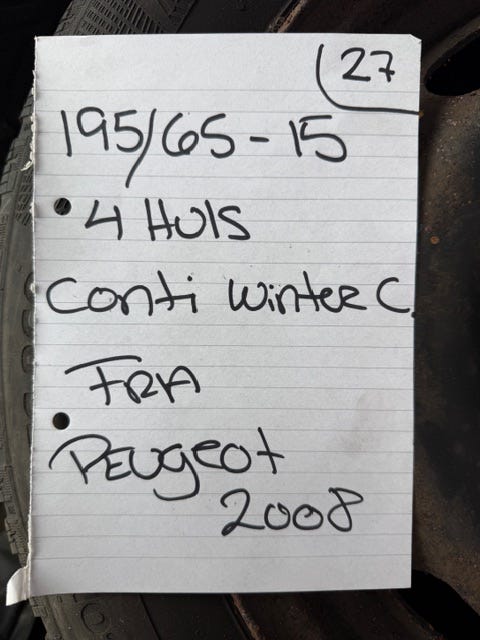 27
195/65-15
4 HULS
Conti Winter C.
FRA
PEUgeot
2008